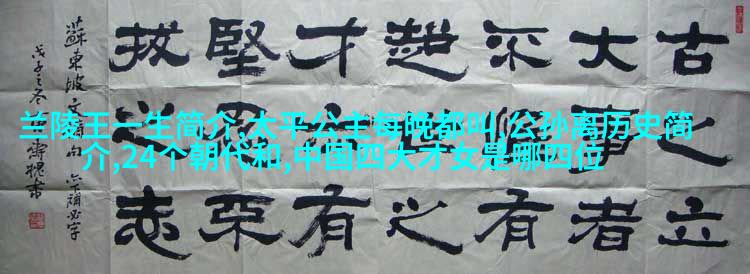 古之立
大事者
不有
超之
才有
堅忍不
拔之志
蘇東坡文句
戊子之冬
兰陵王一生简介,太平公主每晚都叫,公孙离历史简
介,24个朝代和,中国四大才女是哪四位